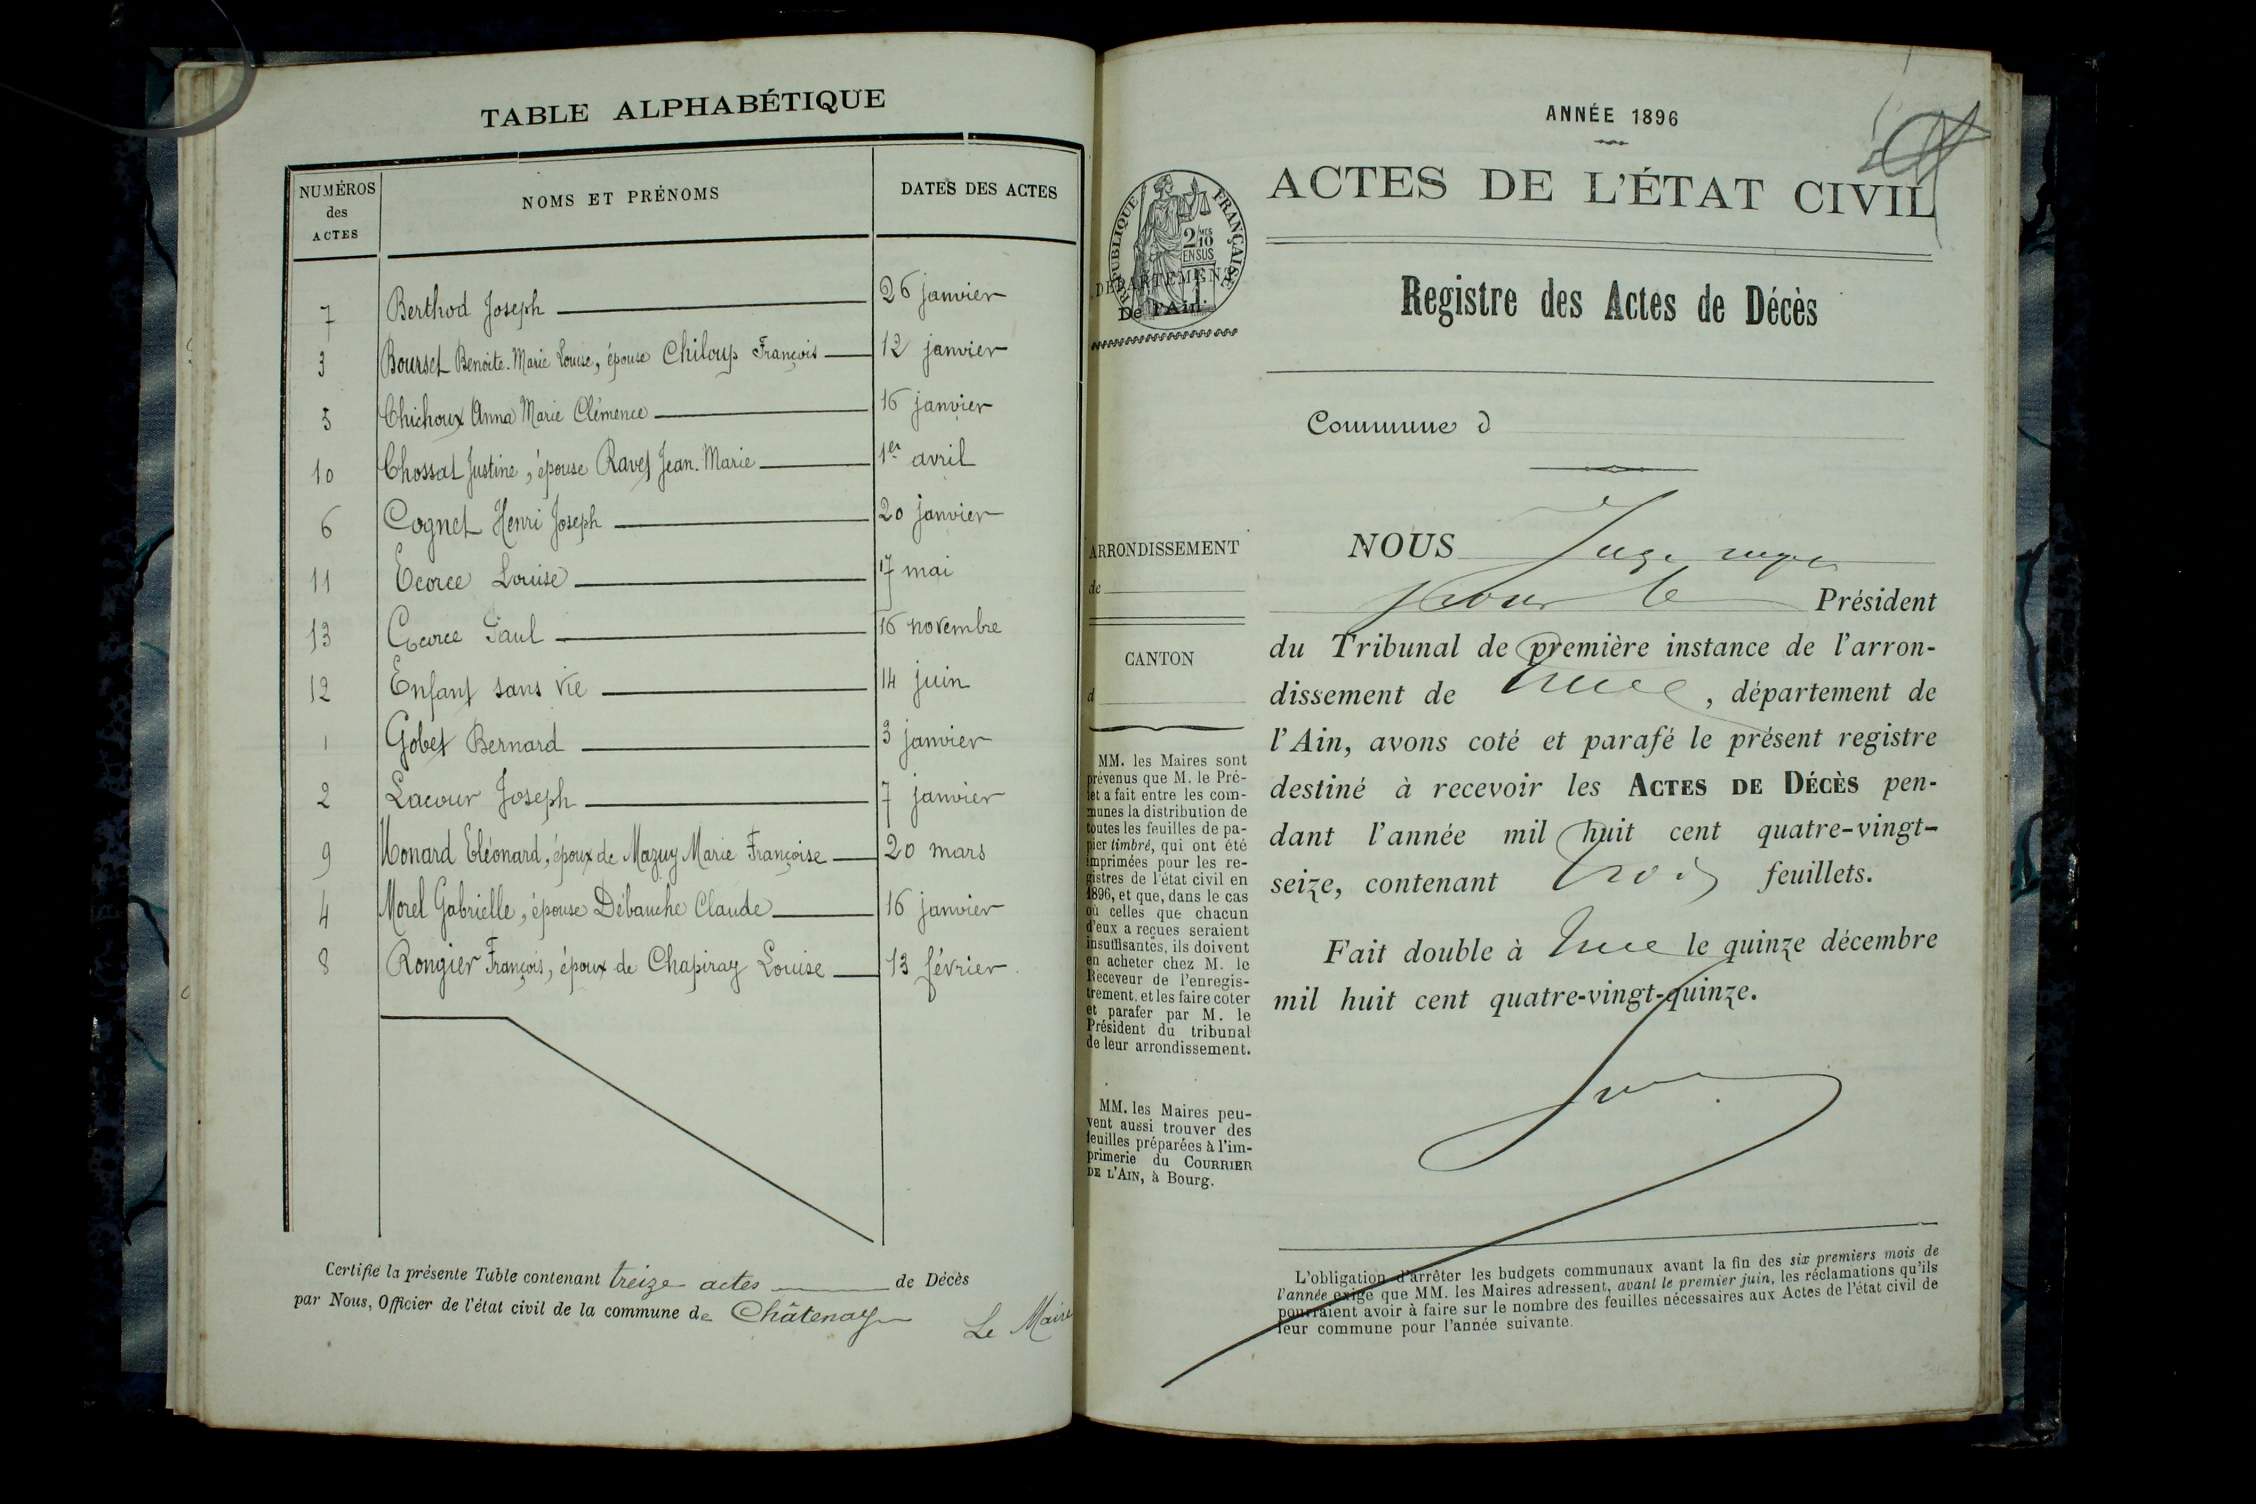 TABLE ALPHABÉTIQUE
NUMÉROS des ACTES NOMS ET PRÉNOMS DATES DES ACTES
7 Berthod Joseph 26 janvier
3 Bourset Benoite-Marie Louise, épouse Chiloup François 12 janvier
5 Chichoux Anna Marie Clémence 16 janvier
10 Chossat Justine, épouse Ravet Jean-Marie 1er avril
6 Cognet Henri Joseph 20 janvier
11 Ecorce Louise 17 mai
13 Ecorce Paul 16 novembre
12 Enfant sans vie 14 juin
1 Gobet Bernard 3 janvier
2 Lacour Joseph 7 janvier
9 Monard Eléonard, époux de Mazuy Marie Françoise 20 mars
4 Morel Gabrielle, épouse Débauche Claude 16 janvier
8 Rongier François, époux de Chapiray Louise 13 février
Certifié la présente Table contenant treize actes de Décès
par Nous, Officier de l'état civil de la commune de Châtenay
Le Maire
ANNÉE 1896
ACTES DE L'ÉTAT CIVIL
RÉPUBLIQUE FRANÇAISE
2 MES 10 EN SUS
DÉPARTEMENT
De l'Ain
Registre des Actes de Décès
Commune d
ARRONDISSEMENT
de
CANTON
d
MM. les Maires sont
prévenus que M. le Pré-
fet a fait entre les com-
munes la distribution de
toutes les feuilles de pa-
pier timbré, qui ont été
imprimées pour les re-
gistres de l'état civil en
1896, et que, dans le cas
où celles que chacun
d'eux a reçues seraient
insuffisantes, ils doivent
en acheter chez M. le
Receveur de l'enregis-
trement, et les faire coter
et parafer par M. le
Président du tribunal
de leur arrondissement.
MM. les Maires peu-
vent aussi trouver des
feuilles préparées à l'im-
primerie du COURRIER
DE L'AIN, à Bourg.
NOUS Juge
pour le Président
du Tribunal de première instance de l'arron-
dissement de , département de
l'Ain, avons coté et parafé le présent registre
destiné à recevoir les ACTES DE DÉCÈS pen-
dant l'année mil huit cent quatre-vingt-
seize, contenant trois feuillets.
Fait double à le quinze décembre
mil huit cent quatre-vingt-quinze.
L'obligation d'arrêter les budgets communaux avant la fin des six premiers mois de
l'année exige que MM. les Maires adressent, avant le premier juin, les réclamations qu'ils
pourraient avoir à faire sur le nombre des feuilles nécessaires aux Actes de l'état civil de
leur commune pour l'année suivante.